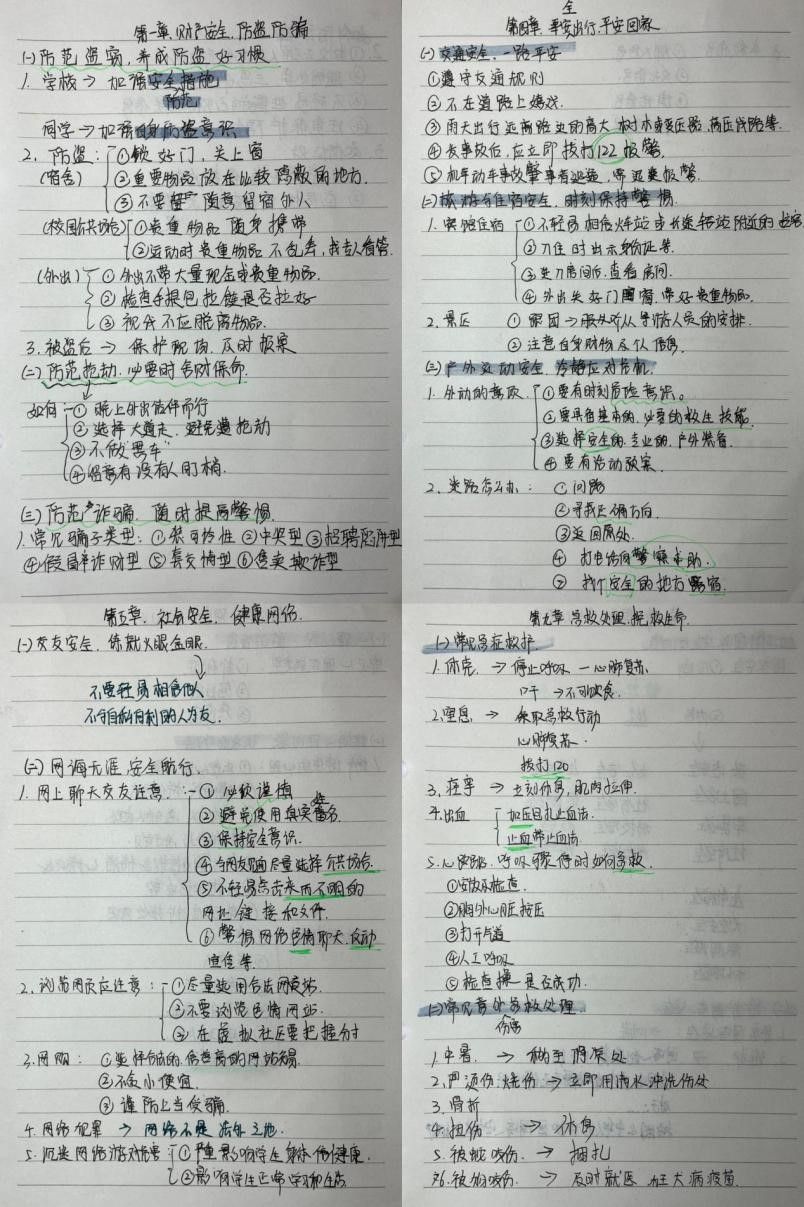 第一章、财产安全、防盗防骗
(一)防范盗窃，养成防盗好习惯
1. 学校→ 加强安全措施
防范
同学→加强自身防盗意识
2. 防盗： ①锁好门，关上窗
(宿舍) ②重要物品放在比较隐蔽的地方.
③不要随意留宿外人
(校园公共场合) ①贵重物品随身携带
②运动时贵重物品不包弄，找专人看管.
(外出) ①外出不带大量现金或贵重物品.
②检查手提包拉链是否拉好
③视线不应脱离物品.
3. 被盗后→ 保护现场，及时报案
(二)防范抢劫，必要时舍财保命.
如何 ①晚上外出结伴而行
②选择大道走，避免遭抢劫
③不做黑车
④留意有没有人盯梢.
(三)防范诈骗，随时提高警惕.
1.常见骗子类型：①禁可怜性②中奖型③招聘陷阱型
④假局诈财型⑤套交情型⑥售卖欺诈型
全
第四章，平安出行，平安回家
(一)交通安全，一路平安
①遵守交通规则
②不在道路上嬉戏.
③雨天出行远离路边的高大树木或变压器，高压线路等.
④发事故后，应立即拨打122报警.
⑤机车动车事故肇事者逃逸，常迅速报警.
(二)旅游住宿安全，时刻保持警惕.
1. 宾馆住宿 ①不轻易相信火车站或长途车站附近的
②入住时出示身份证等.
③进入房间后，查看房间.
④外出关好门窗，带好贵重物品.
2. 景区 ①跟团→服从听从导游人员的安排.
②注意自身财物及人信息.
(三)户外运动安全，冷静应对危机.
1. 外动的意取 ①要有时刻危险意识。
②要具备基本的，必要的救生技能.
③选择安全的，专业的，户外装备.
④要有活动预案.
2. 迷路怎么办： ①问路
②寻找正确方向.
③返回原处.
④ 打电话向警察求助.
⑤ 找个安全的地方露宿.
第五章，社会安全，健康网络.
(一)交友安全，练就火眼金眼.
不要轻易相信他人
不与自私自利的人为友.
(二)网海无涯，安全航行.
1. 网上聊天交友注意. ①必须谨慎
②避免使用真实签名.
③保持安全意识.
④与网友见面尽量选择公共场合.
⑤不轻易点击来历不明的
网址链接和文件.
⑥警惕网络色情聊天，反动
宣传等.
2. 浏览网页应注意： ①尽量选用合法网页站.
②不要浏览色情网站.
③在虚拟社区要把握分寸
3. 网购： ①选择合法的，信誉高的网站交易.
②不贪小便宜.
③谨防上当受骗.
4. 网络犯罪 → 网络不是法外之地.
5. 沉迷网络游戏危害 ①严重影响学生身体健康.
②影响学生正常学习和生活
第九章 急救处理，挽救生命.
(一)常见急症救护.
1. 休克. → 停止呼吸 — 心肺复苏
口干 → 不可饮食.
2.窒息 → 采取急救行动
心肺复苏.
拨打120
3. 痉挛 → 立刻休息，肌肉拉伸.
4. 出血 加压包扎止血法.
止血带止血法
5. 心跳，呼吸骤停时如何急救.
①安放及检查.
②胸外心脏按压
③打开气道
④人工呼吸
⑤检查操 是否成功.
(二)常见意外急救处理.
伤害
1. 中暑. → 移至阴凉处
2. 严烫伤，烧伤 → 立即用清水冲洗伤处
3. 骨折
4. 扭伤 → 休息
5. 被蛇咬伤. → 捆扎
6. 被狗咬伤. → 及时就医 狂犬病疫苗.